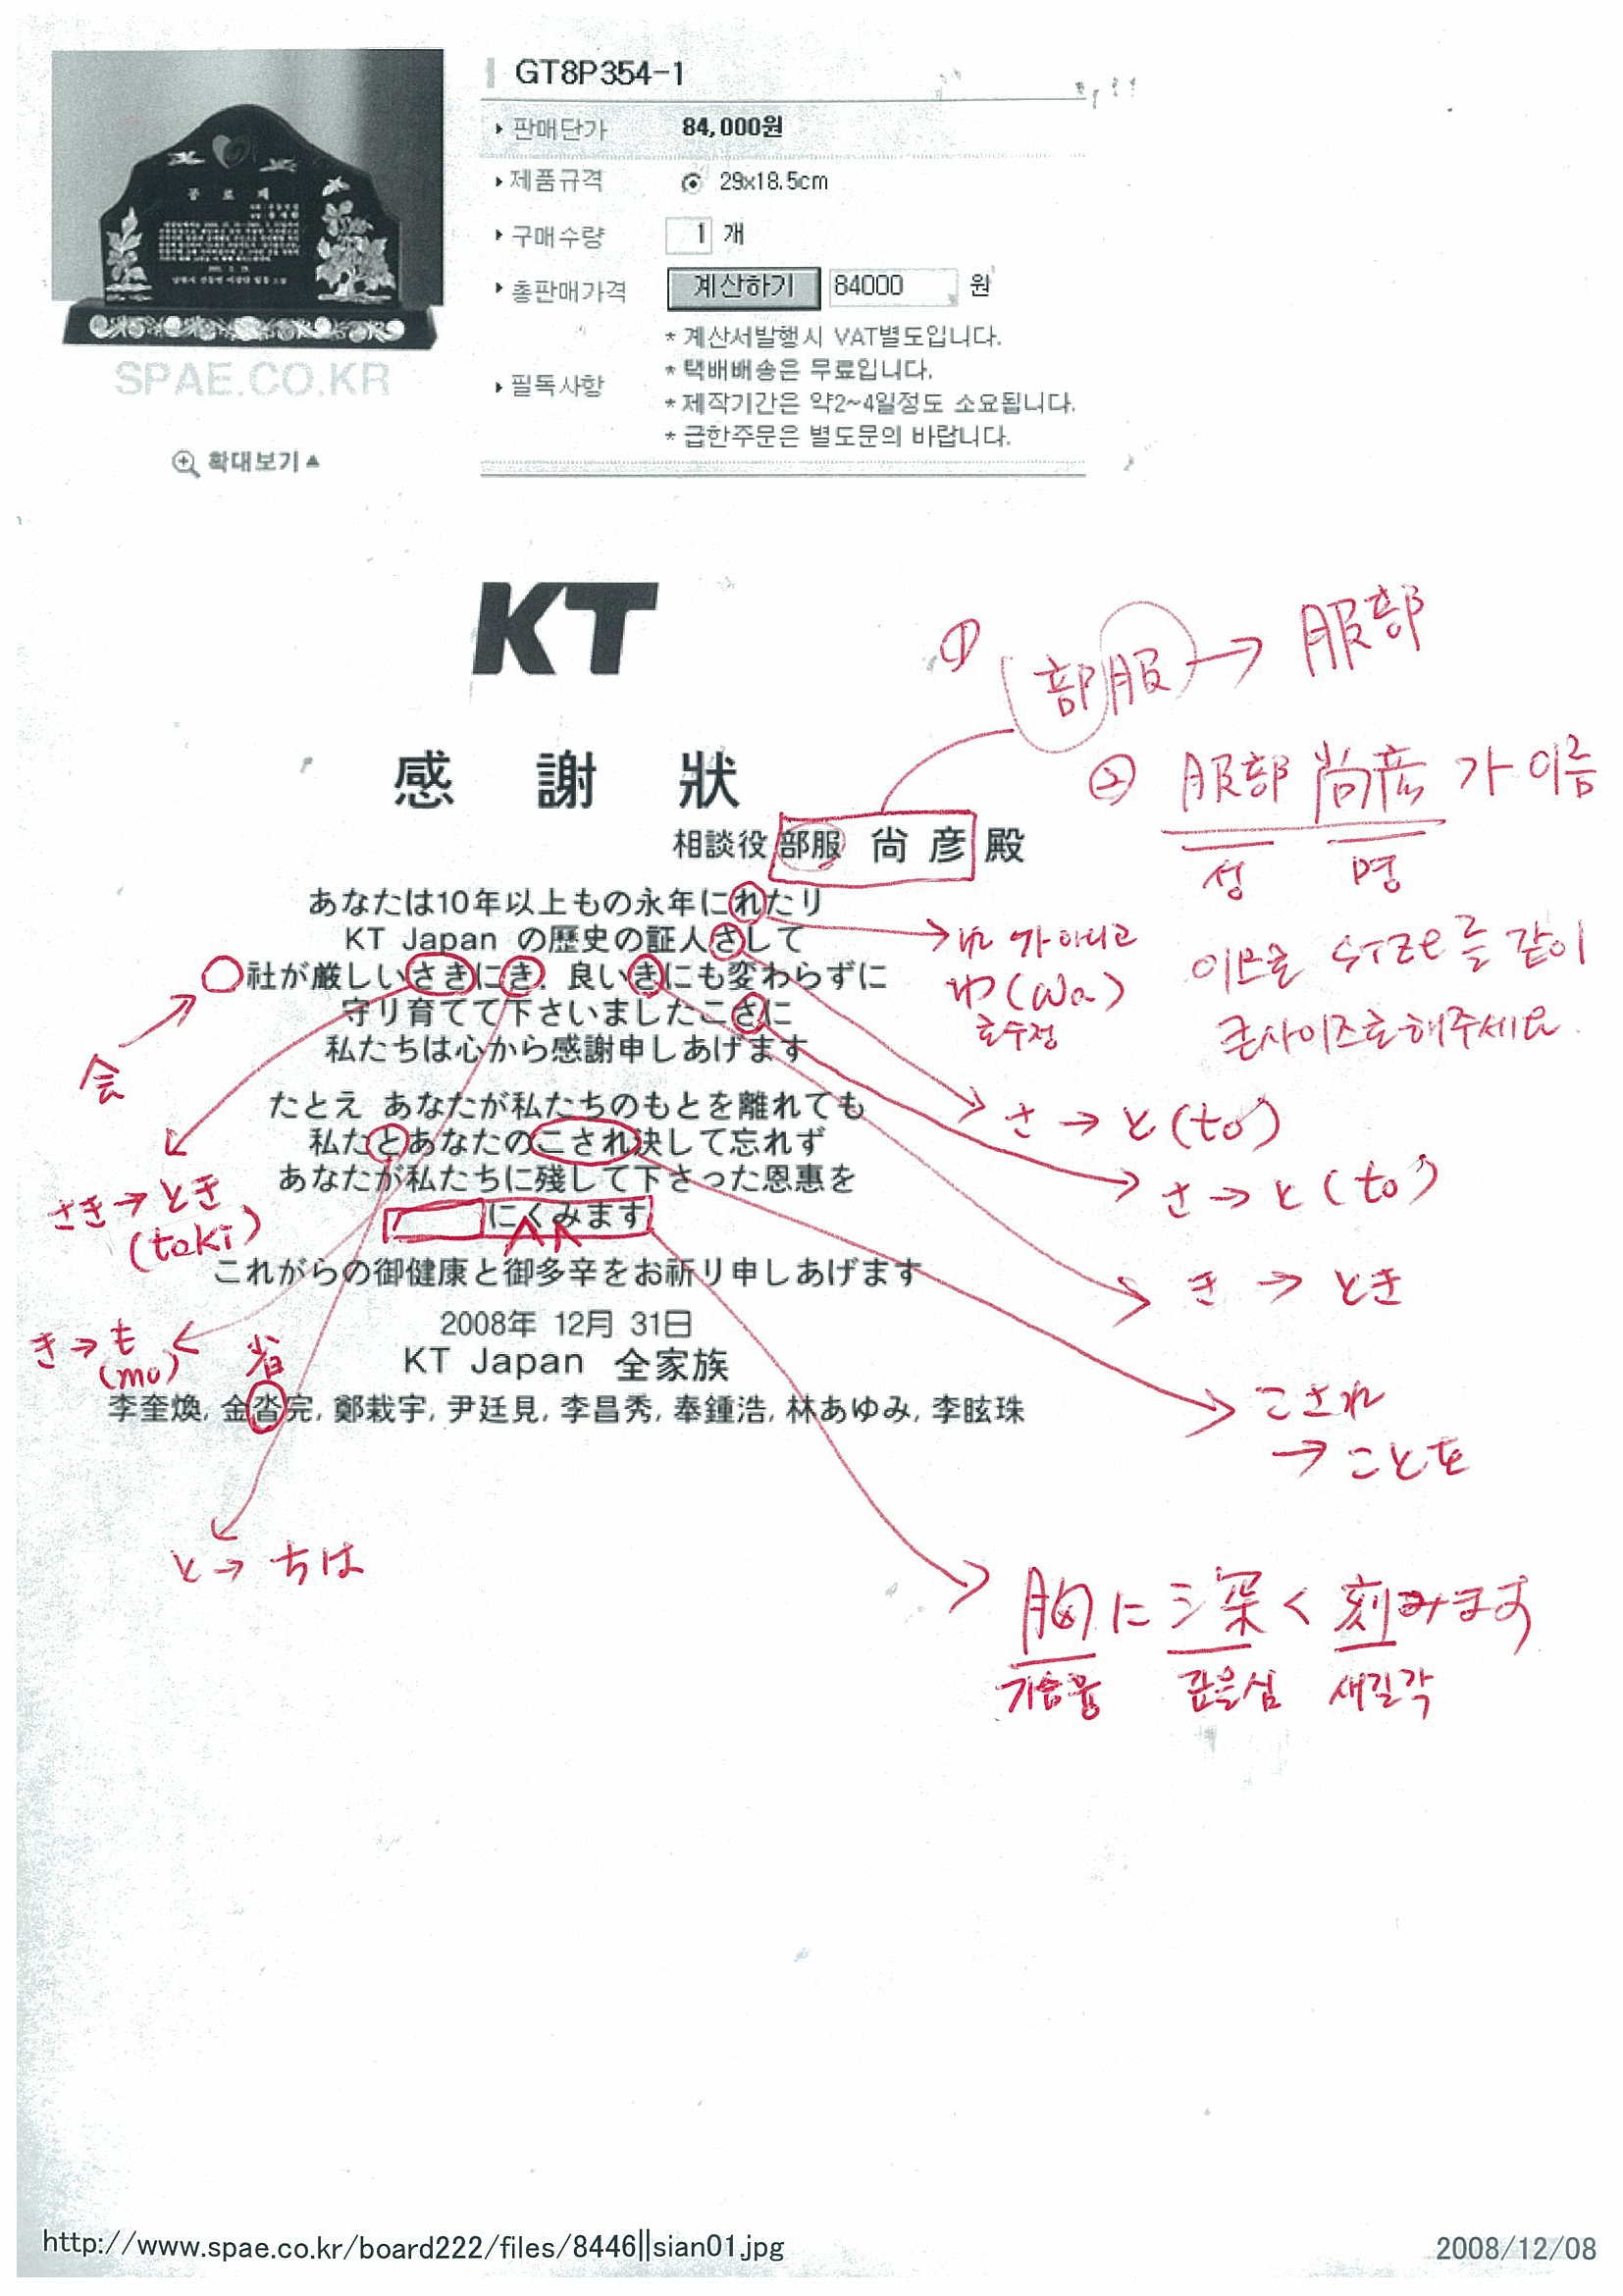 GT8P354-1
판매단가 84,000원
제품규격 29x18.5cm
구매수량 1 개
총판매가격 계산하기 84000 원
필독사항
* 계산서발행시 VAT별도입니다.
* 택배배송은 무료입니다.
* 제작기간은 약2~4일정도 소요됩니다.
* 급한주문은 별도문의 바랍니다.
공 로 패
SPAE.CO.KR
확대보기▲
KT
① 部服 → 服部
② 服部 尚彦 가 이름
성 명
이므로 SIZE를 같이
큰사이즈로 해주세요.
感 謝 狀
相談役 部服 尙 彦 殿
あなたは10年以上もの永年にれたり
KT Japan の歴史の証人さして
社が厳しいさきにき. 良いきにも変わらずに
守り育てて下さいましたこさに
私たちは心から感謝申しあげます
たとえ あなたが私たちのもとを離れても
私たとあなたのこされ決して忘れず
あなたが私たちに殘して下さった恩惠を
にくみます
これがらの御健康と御多辛をお祈り申しあげます
2008年 12月 31日
KT Japan 全家族
李奎煥, 金沓完, 鄭栽宇, 尹廷見, 李昌秀, 奉鍾浩, 林あゆみ, 李眩珠
れ 가 아니고
わ (wa)
로수정
会
さ → と (to)
さ → と (to)
さき → とき
(toki)
き → とき
き → も
(mo)
省
こされ
→ ことを
と → ちは
胸に深く刻みます
가슴흉 깊을심 새길각
http://www.spae.co.kr/board222/files/8446||sian01.jpg
2008/12/08